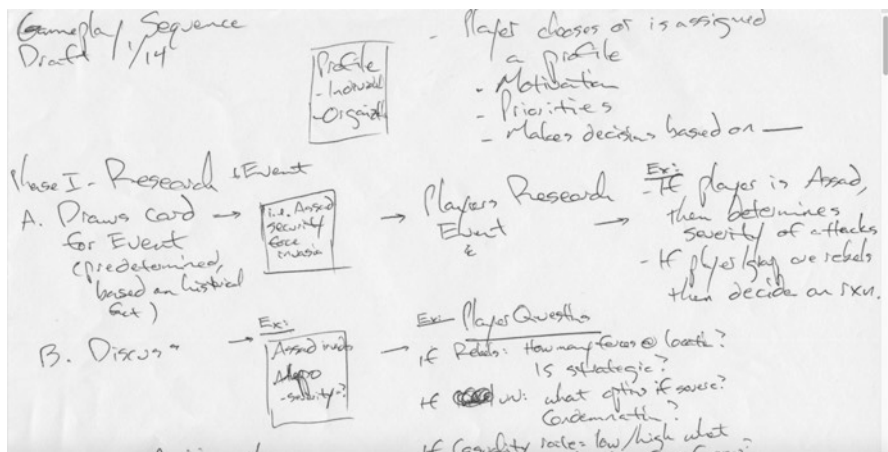 Gameplay Sequence
Draft 1/14
Profile
- Individual
- Organiz
- Player chooses or is assigned
a profile
- Motivation
- Priorities
- Makes decisions based on —
Phase I - Research & Event
A. Draws card
for Event
(predetermined,
based on historical
fact)
i.e. Assad
security
force
invasion
Players Research
Event
&
Ex:
- If player is Assad,
then determines
severity of attacks
- If player/group are rebels
then decide on rxn.
B. Discuss
Ex:
Assad invades
Aleppo
- severity - ?
Ex: Player Questions
If Rebels: How many forces @ location?
Is strategic?
If UN: what option if severe?
Condemnation?
If Casualty rate = low/high what